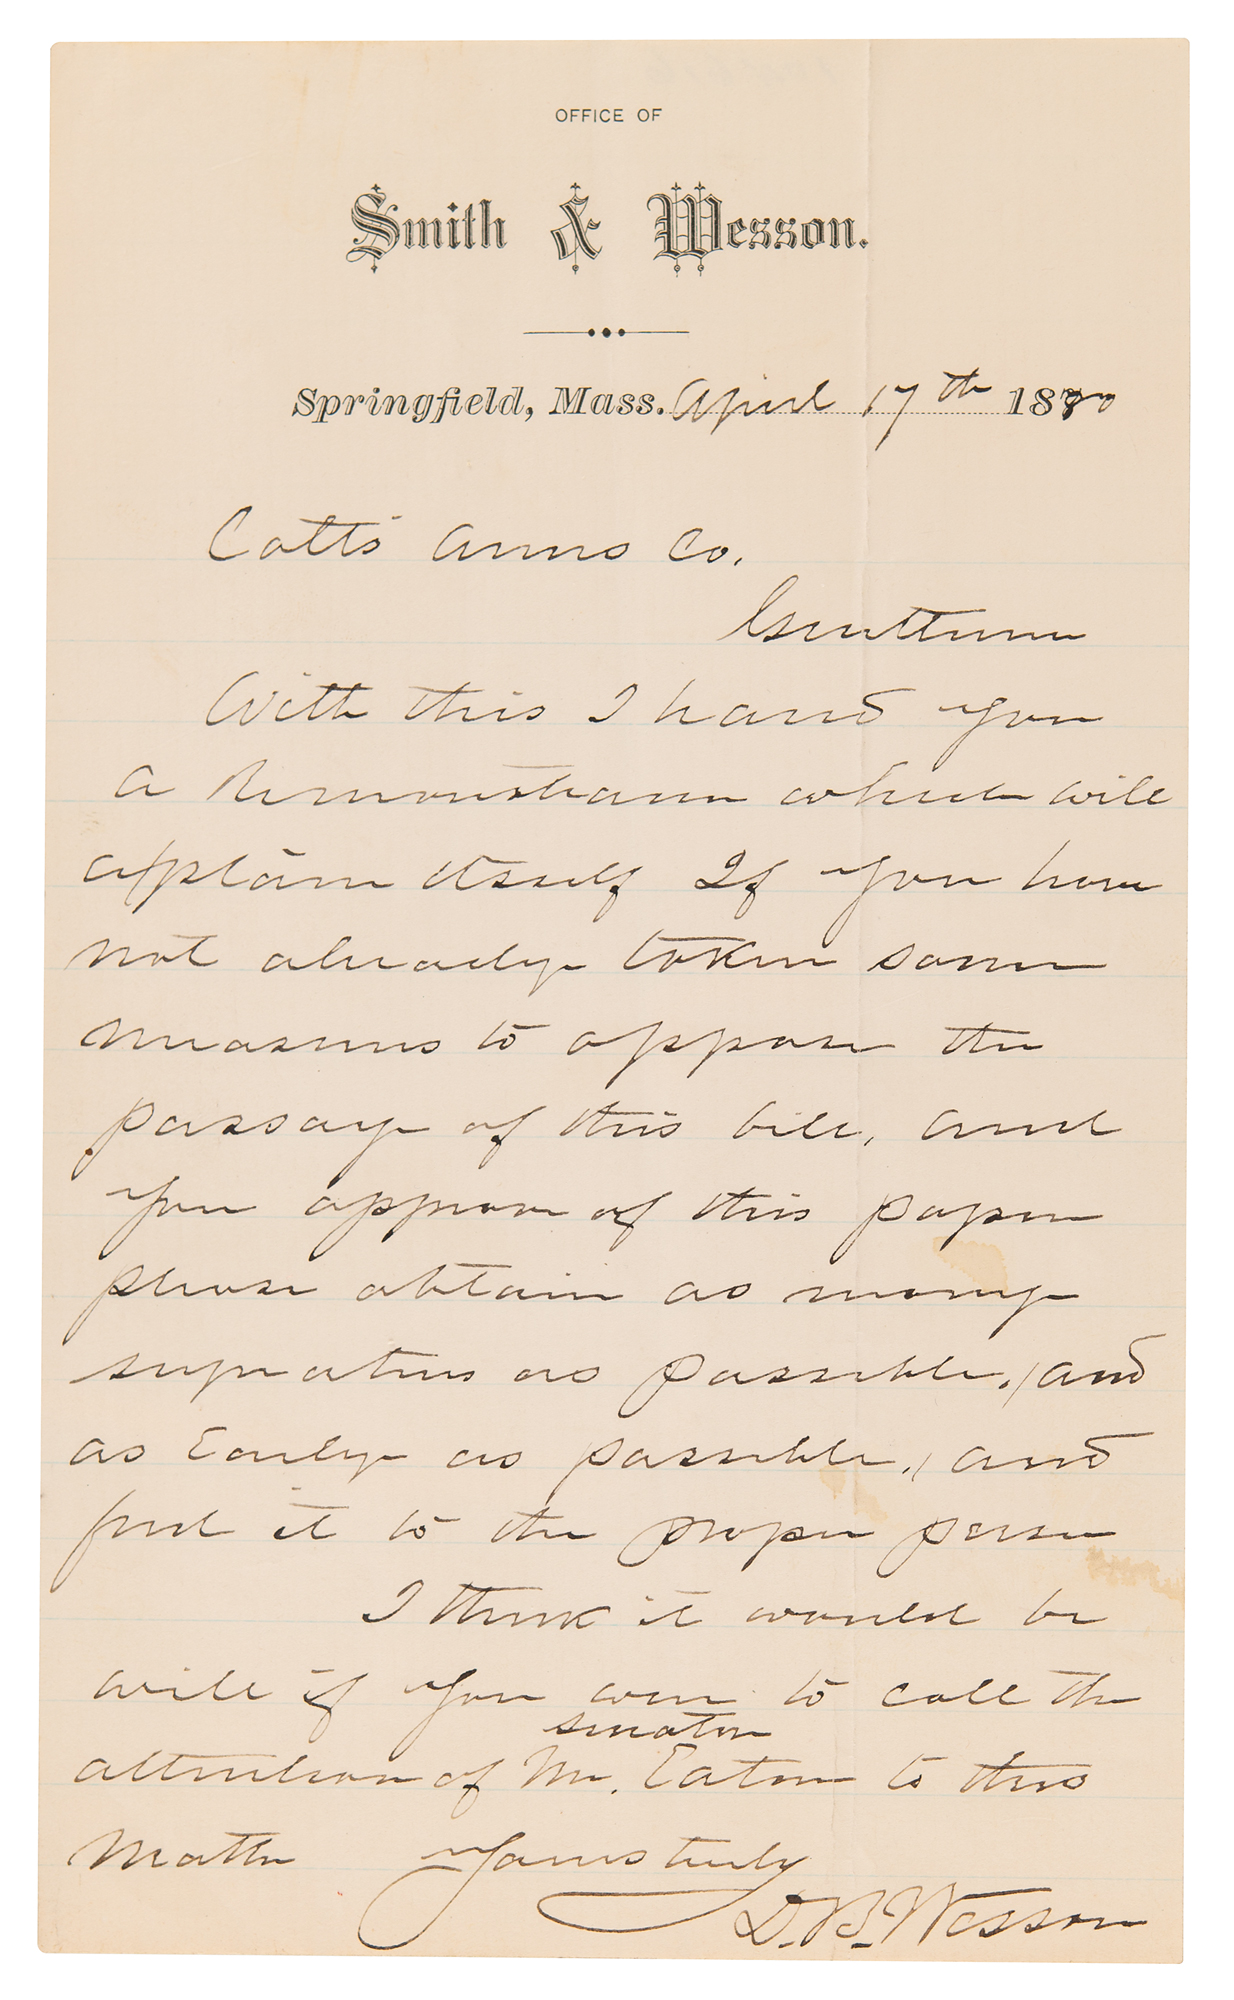 OFFICE OF
Smith & Wesson.
Springfield, Mass. April 17th 1880
Colts Arms Co.
Gentlemen
With this I hand you
a Remonstrance which will
explain itself If you have
not already taken some
measures to oppose the
passage of this bill, and
you approve of this paper
please obtain as many
signatures as possible, and
as Early as possible, and
send it to the proper person
I think it would be
well if you were to call the
senator
attention of Mr. Eaton to this
Matter Yours truly
D. B. Wesson